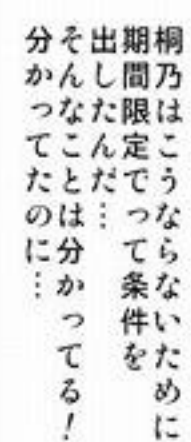 桐乃はこうならないために
期間限定でって条件を
出したんだ…
そんなことは分かってる！
分かってたのに…